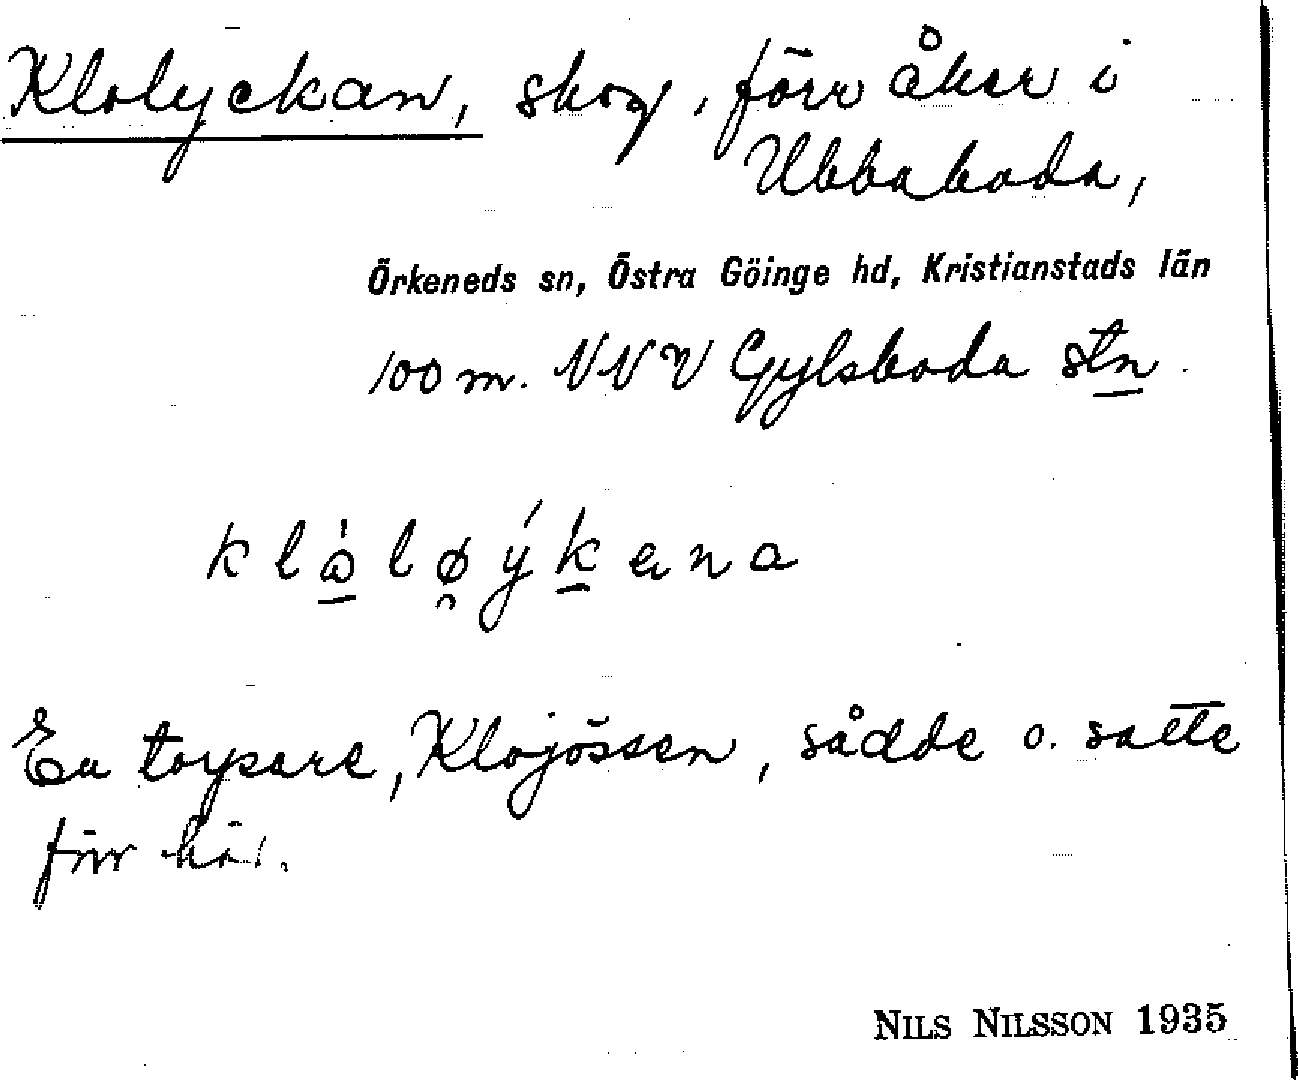 Klolyckan, skog, förr åker i
Ubbaboda,
Örkeneds sn, Östra Göinge hd, Kristianstads län
100 m. NNV Gylsboda stn.
En torpare, Klojössen, sådde o. satte
förr här.
NILS NILSSON 1935